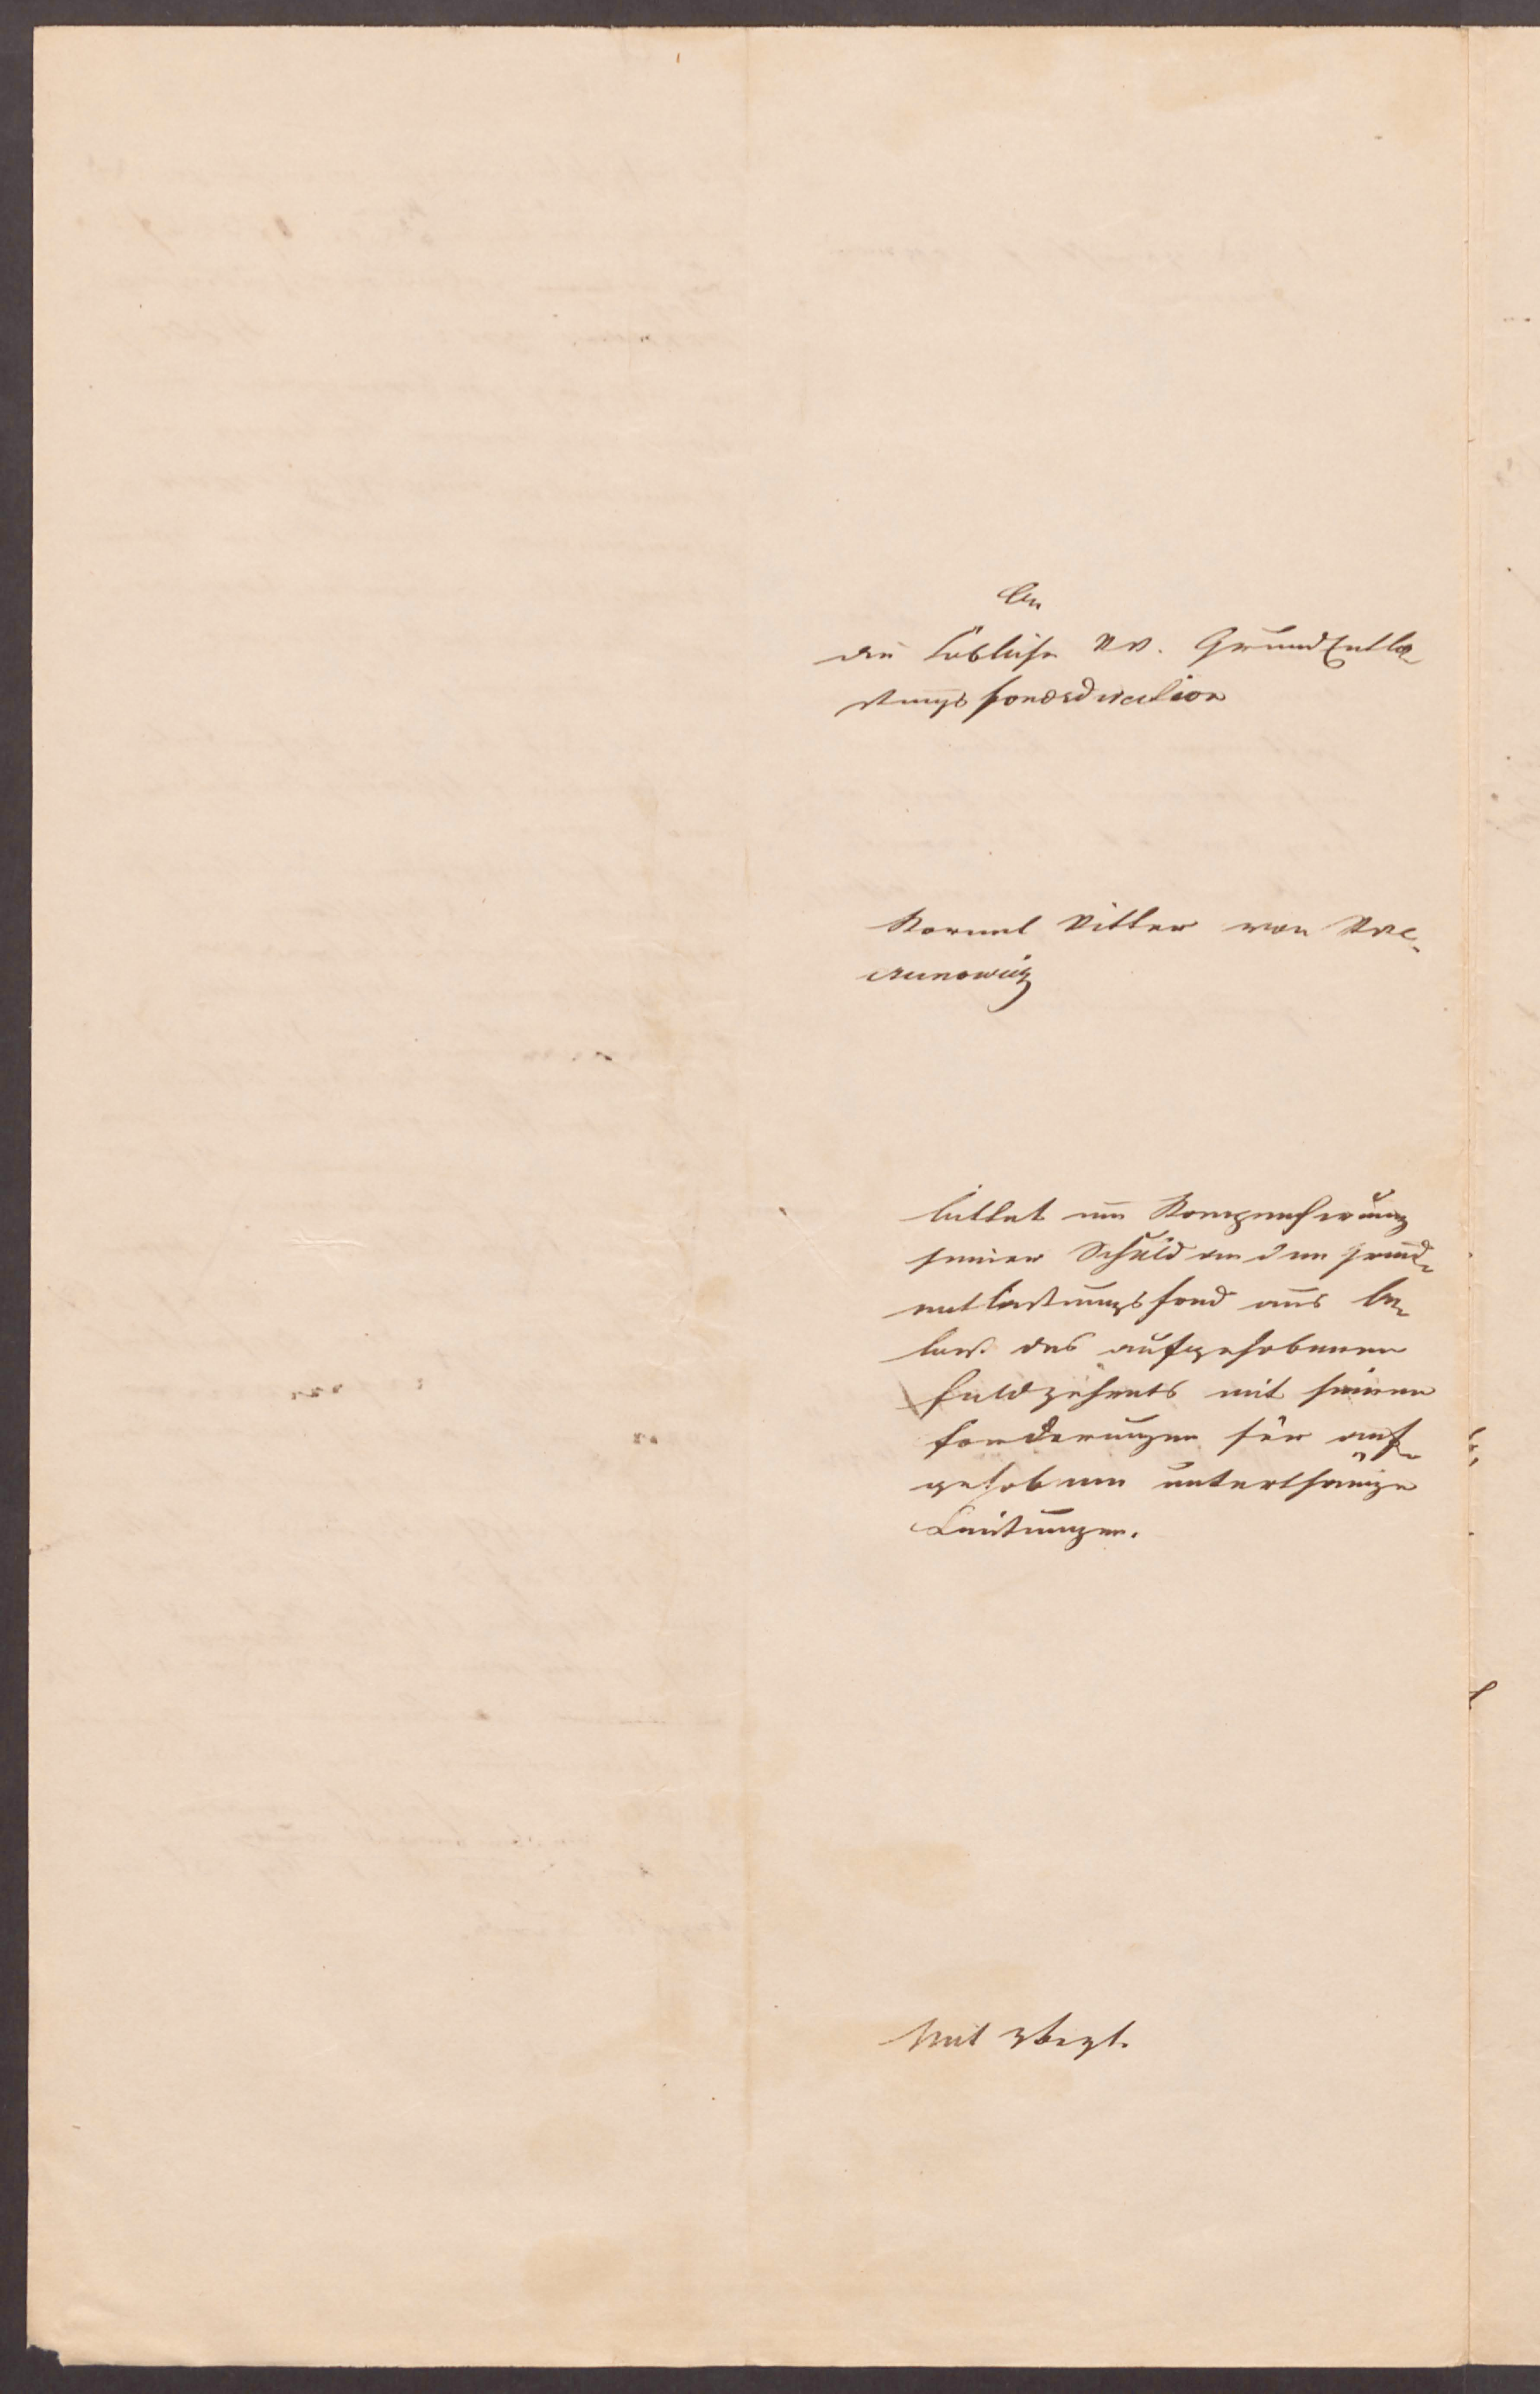 An
die Löbliche KK. GrundEntla-
stungsfondsdirection
Kornel Ritter von Kre-
chunowicz
bittet um Kompensirung
seiner Schuld an den Grund-
entlastungsfond aus
des aufgehobenen
Feldzehents mit seinen
Forderungen für auf-
gehobene unterthänige
Leistungen.
Mit